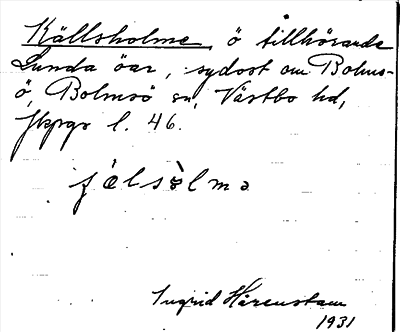 Källsholme, ö tillhörande
Lunda öar, sydost om Bolms-
ö, Bolmsö sn, Västbo hd,
Jkpgs l. 46.
Ingrid Härenstam
1931